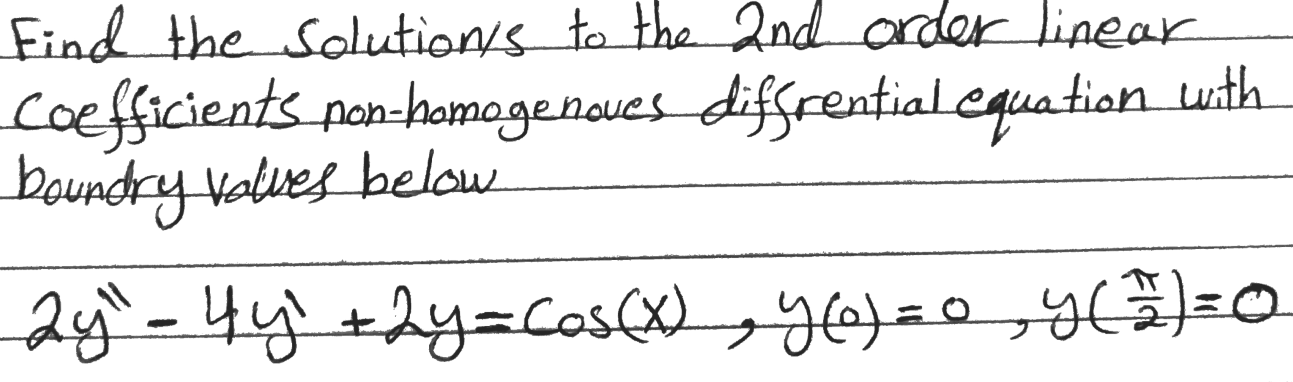 Find the Solution/s to the 2nd order linear
Coefficients non-homogenoues diffrential equation with
boundry values below
2y'' - 4y' + 2y = Cos(x) , y(0) = 0 , y(π/2) = 0